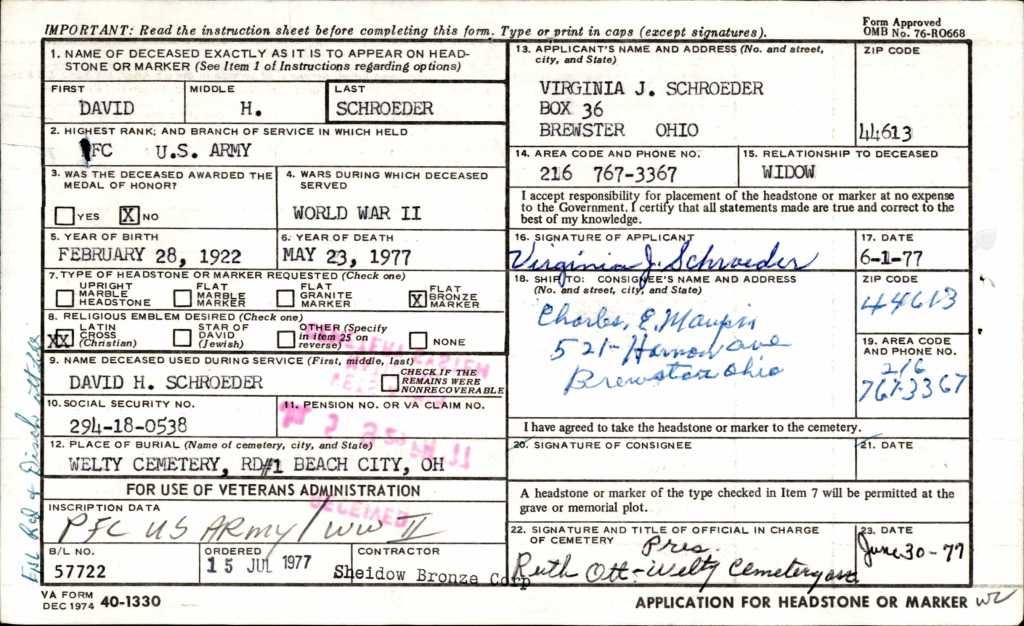 IMPORTANT: Read the instruction sheet before completing this form. Type or print in caps (except signatures).
Form Approved
OMB No. 76-RO668
1. NAME OF DECEASED EXACTLY AS IT IS TO APPEAR ON HEAD-
STONE OR MARKER (See Item 1 of Instructions regarding options)
FIRST MIDDLE LAST
DAVID H. SCHROEDER
2. HIGHEST RANK; AND BRANCH OF SERVICE IN WHICH HELD
PFC U.S. ARMY
3. WAS THE DECEASED AWARDED THE
MEDAL OF HONOR?
YES X NO
4. WARS DURING WHICH DECEASED
SERVED
WORLD WAR II
5. YEAR OF BIRTH
FEBRUARY 28, 1922
6. YEAR OF DEATH
MAY 23, 1977
7. TYPE OF HEADSTONE OR MARKER REQUESTED (Check one)
UPRIGHT
MARBLE
HEADSTONE
FLAT
MARBLE
MARKER
FLAT
GRANITE
MARKER
X FLAT
BRONZE
MARKER
8. RELIGIOUS EMBLEM DESIRED (Check one)
XX LATIN
CROSS
(Christian)
STAR OF
DAVID
(Jewish)
OTHER (Specify
in item 25 on
reverse)
NONE
9. NAME DECEASED USED DURING SERVICE (First, middle, last)
DAVID H. SCHROEDER
CHECK IF THE
REMAINS WERE
NONRECOVERABLE
10. SOCIAL SECURITY NO.
294-18-0538
11. PENSION NO. OR VA CLAIM NO.
12. PLACE OF BURIAL (Name of cemetery, city, and State)
WELTY CEMETERY, RD#1 BEACH CITY, OH
FOR USE OF VETERANS ADMINISTRATION
INSCRIPTION DATA
PFC US ARMY / WW II
B/L NO.
57722
ORDERED
15 JUL 1977
CONTRACTOR
Sheidow Bronze Corp
VA FORM
DEC 1974 40-1330
13. APPLICANT'S NAME AND ADDRESS (No. and street,
city, and State)
VIRGINIA J. SCHROEDER
BOX 36
BREWSTER OHIO
ZIP CODE
44613
14. AREA CODE AND PHONE NO.
216 767-3367
15. RELATIONSHIP TO DECEASED
WIDOW
I accept responsibility for placement of the headstone or marker at no expense
to the Government. I certify that all statements made are true and correct to the
best of my knowledge.
16. SIGNATURE OF APPLICANT
Virginia J. Schroeder
17. DATE
6-1-77
18. SHIP TO: CONSIGNEE'S NAME AND ADDRESS
(No. and street, city, and State)
Charles, E. Maupin
521- ave
Brewster Ohio
ZIP CODE
44613
19. AREA CODE
AND PHONE NO.
216
767-3367
I have agreed to take the headstone or marker to the cemetery.
20. SIGNATURE OF CONSIGNEE
21. DATE
A headstone or marker of the type checked in Item 7 will be permitted at the
grave or memorial plot.
22. SIGNATURE AND TITLE OF OFFICIAL IN CHARGE
OF CEMETERY
Pres.
Ruth Ott-Welty Cemetery
23. DATE
June 30-77
APPLICATION FOR HEADSTONE OR MARKER
RECEIVED